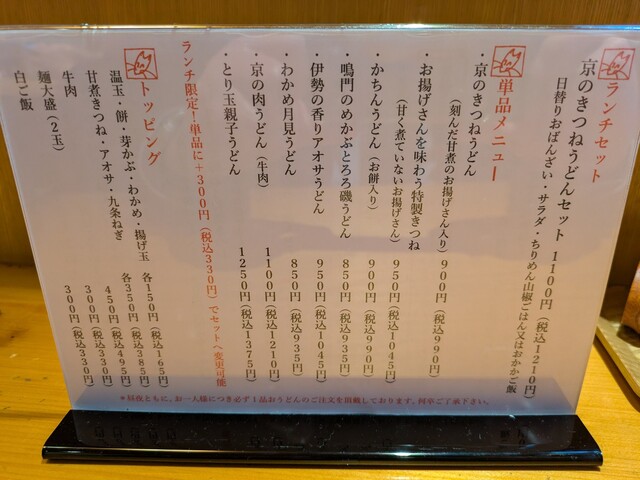 ランチセット
京のきつねうどんセット 1100円(税込1210円)
日替りおばんざい・サラダ・ちりめん山椒ごはん又はおかかご飯
単品メニュー
・京のきつねうどん 900円(税込990円)
(刻んだ甘煮のお揚げさん入り)
・お揚げさんを味わう特製きつね 950円(税込1045円)
(甘く煮ていないお揚げさん)
・かちんうどん(お餅入り) 900円(税込990円)
・鳴門のめかぶとろろ磯うどん 850円(税込935円)
・伊勢の香りアオサうどん 950円(税込1045円)
・わかめ月見うどん 850円(税込935円)
・京の肉うどん(牛肉) 1100円(税込1210円)
・とり玉親子うどん 1250円(税込1375円)
ランチ限定!単品に+300円(税込330円)でセットへ変更可能
トッピング
温玉・餅・芽かぶ・わかめ・揚げ玉 各150円(税込165円)
甘煮きつね・アオサ・九条ねぎ 各350円(税込385円)
牛肉 450円(税込495円)
麺大盛(2玉) 300円(税込330円)
白ご飯 300円(税込330円)
*昼夜ともに、お一人様につき必ず1品おうどんのご注文を頂戴しております。何卒ご了承下さい。